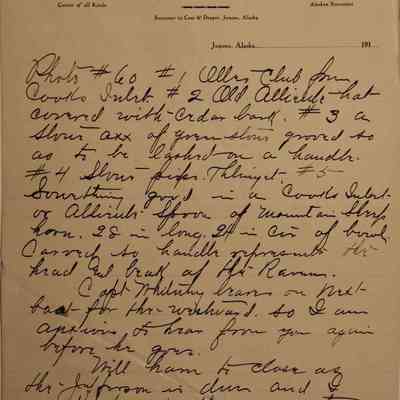 Curios of all Kinds
Alaskan Souvenirs
Successor to Case & Draper, Juneau, Alaska
Juneau, Alaska 191
Photo #60 #1 Club from
Cooks Inlet. #2 Old hat
covered with Cedar bark. #3 a
Stone axx of green stone groved so
as to be lashed on a handle.
#4 Stone Thlinget #5
Something good in a Cooks Inlet
or Spoon of Mountain Sheep
horn. 28 in long. 24 in Cir of bowl.
Carved so handle represents the
head and beak of the Raven.
Capt Whitney leaves on next
boat for the westward. so I am
anxious to hear from you again
before he goes.
Will have to close as
the Jefferson is due and I